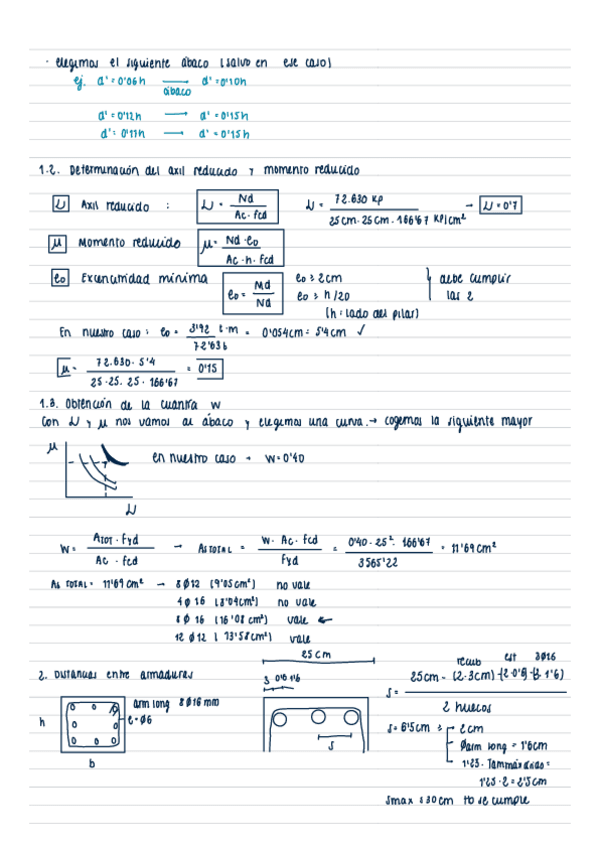 · elegimos el siguiente ábaco (salvo en ese caso)
ej. d' = 0'06h → d' = 0'10h
ábaco
d' = 0'12h → d' = 0'15h
d' = 0'11h → d' = 0'15h
1.2. Determinación del axil reducido y momento reducido
ν Axil reducido : ν = Nd / Ac · fcd ν = 72.630 kp / 25cm · 25cm · 166'67 kp/cm² → ν = 0'7
μ Momento reducido μ = Nd · e₀ / Ac · h · fcd
e₀ Excentricidad mínima e₀ = Md / Nd e₀ ≥ 2cm
e₀ ≥ h/20
debe cumplir
las 2
(h = lado del pilar)
En nuestro caso : e₀ = 3'92 t·m / 72'63t = 0'054cm = 5'4cm ✓
μ = 72.630 · 5'4 / 25 · 25 · 25 · 166'67 = 0'15
1.3. Obtención de la cuantía w
Con ν y μ nos vamos al ábaco y elegimos una curva. → cogemos la siguiente mayor
μ
en nuestro caso → w = 0'40
ν
w = ATOT · fyd / Ac · fcd → As TOTAL = w · Ac · fcd / fyd = 0'40 · 25² · 166'67 / 3565'22 = 11'69 cm²
As TOTAL = 11'69 cm² → 8 ø 12 (9'05 cm²) no vale
4 ø 16 (8'04cm²) no vale
8 ø 16 (16'08 cm²) vale ←
12 ø 12 ( 13'58 cm²) vale
25 cm
2. Distancias entre armaduras
3 0'6 1'6
recub est 3ø16
s = 25cm - (2·3cm) - (2·0'6) - (3·1'6) / 2 huecos
arm long 8 ø 16 mm
e = ø6
h
b
s
s = 6'5cm ≥ 2cm
øarm long = 1'6cm
1'25 · Tam máx árido =
1'25 · 2 = 2'5cm
smax ≤ 30 cm no se cumple